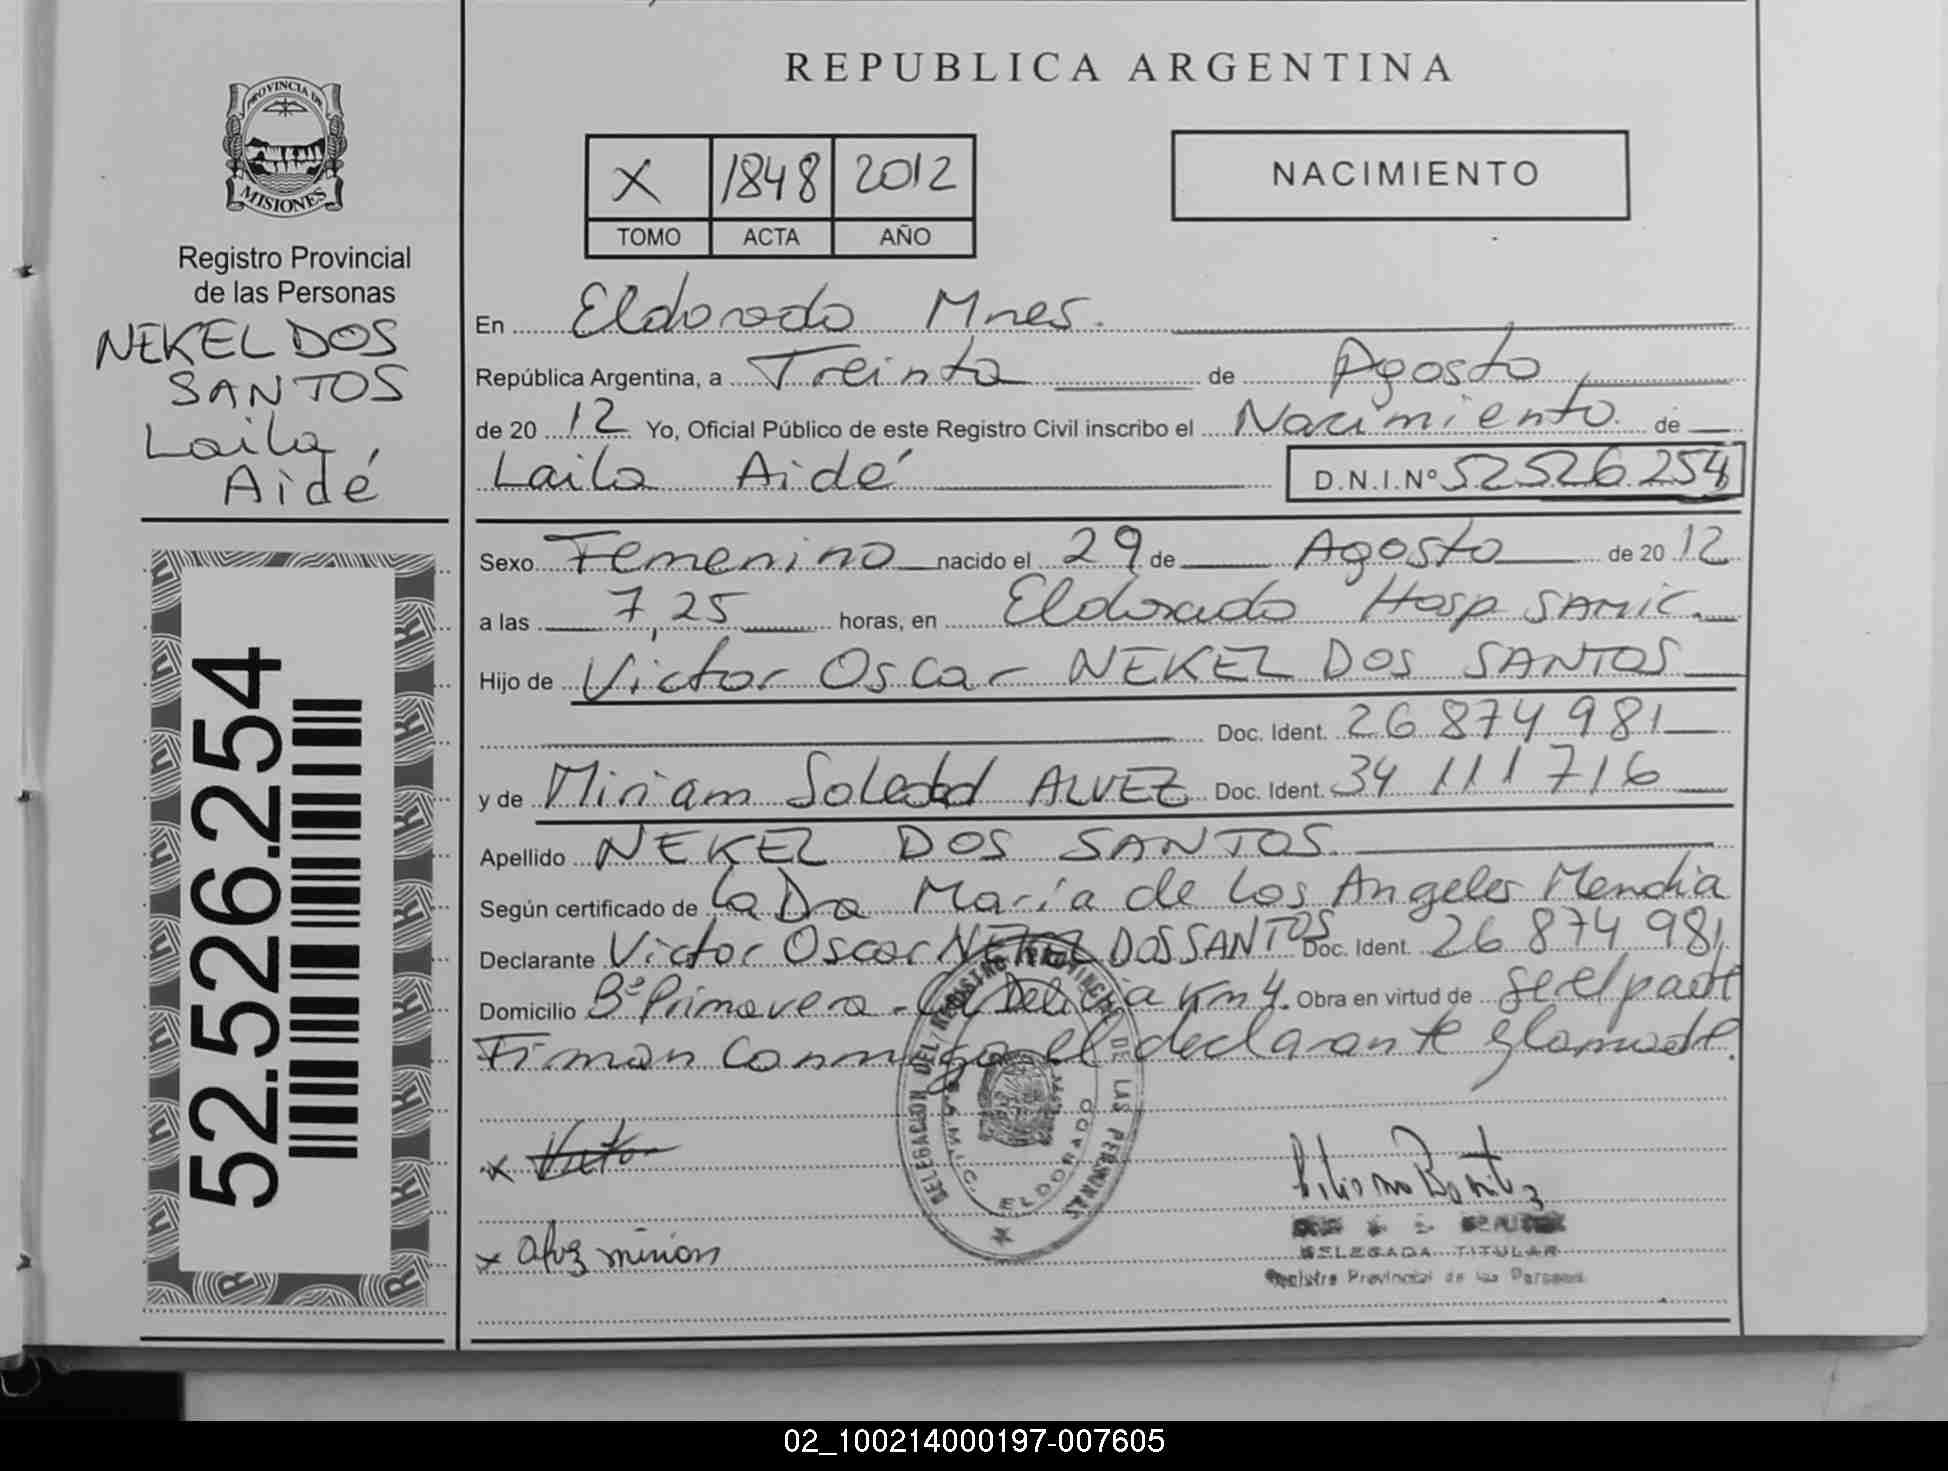 REPUBLICA ARGENTINA
PROVINCIA DE
MISIONES
Registro Provincial
de las Personas
NEKEL DOS
SANTOS
Laila
Aidé
52.526.254
X 1848 2012
TOMO ACTA AÑO
NACIMIENTO
En Eldorado Mnes.
República Argentina, a Treinta de Agosto
de 20 12 Yo, Oficial Público de este Registro Civil inscribo el Nacimiento de
Laila Aidé D.N.I.Nº 52526254
Sexo Femenino nacido el 29 de Agosto de 20 12
a las 7,25 horas, en Eldorado Hosp SAMIC.
Hijo de Victor Oscar NEKEL DOS SANTOS
Doc. Ident. 26 874 981
y de Miriam Soledad ALVEZ Doc. Ident. 34 111 716
Apellido NEKEL DOS SANTOS
Según certificado de La Dra María de Los Angeles Mendia
Declarante Victor Oscar NEKEL DOS SANTOS Doc. Ident. 26 874 981
Domicilio Bº Primavera - La Delicia Km 4. Obra en virtud de ser el padre
Firman conmigo el declarante y la madre.
DELEGACION DEL REGISTRO PROVINCIAL DE LAS PERSONAS
ELDORADO
x Victor
x Alvez mirian
DELEGADA TITULAR
Registro Provincial de las Personas
02_100214000197-007605